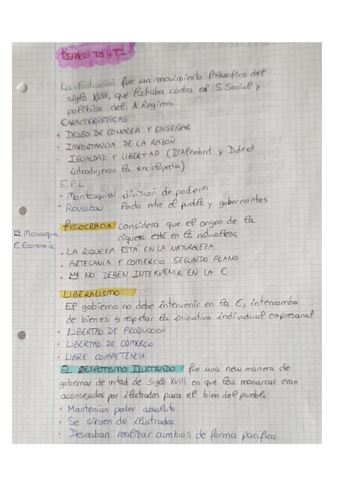 REPASO T1 y T2
La ilustración fue un movimiento filosófico del
siglo XVIII, que luchaba contra el S. Social y
política del A. Régimen
CARACTERÍSTICAS
• DESEO DE CONOCER Y ENSEÑAR
• IMPORTANCIA DE LA RAZÓN
• IGUALDAD Y LIBERTAD (D'Alembert y Diderot
introdujeron la enciclopedia)
- Montesquieu división de poderes
- Rousseau Pacto entre el pueblo y gobernantes
FISIOCRACIA considera que el origen de la
riqueza está en la naturaleza
• LA RIQUEZA ESTÁ EN LA NATURALEZA
• ARTESANÍA Y COMERCIO SEGUNDO PLANO
• NO DEBEN INTERVENIR EN LA E
El Monarquía
E: Economía
LIBERALISMO
El gobierno no debe intervenir en la E, intercambio
de bienes y respetar la iniciativa individual empresarial
• LIBERTAD DE PRODUCCIÓN
• LIBERTAD DE COMERCIO
• LIBRE COMPETENCIA
EL DESPOTISMO ILUSTRADO fue una nueva manera de
gobernar de mitad de siglo XVIII en que los monarcas eran
aconsejados por ilustrados para el bien del pueblo
• Mantenían poder absoluto
• Se sirven de ilustrados
• Deseaban realizar cambios de forma pacífica